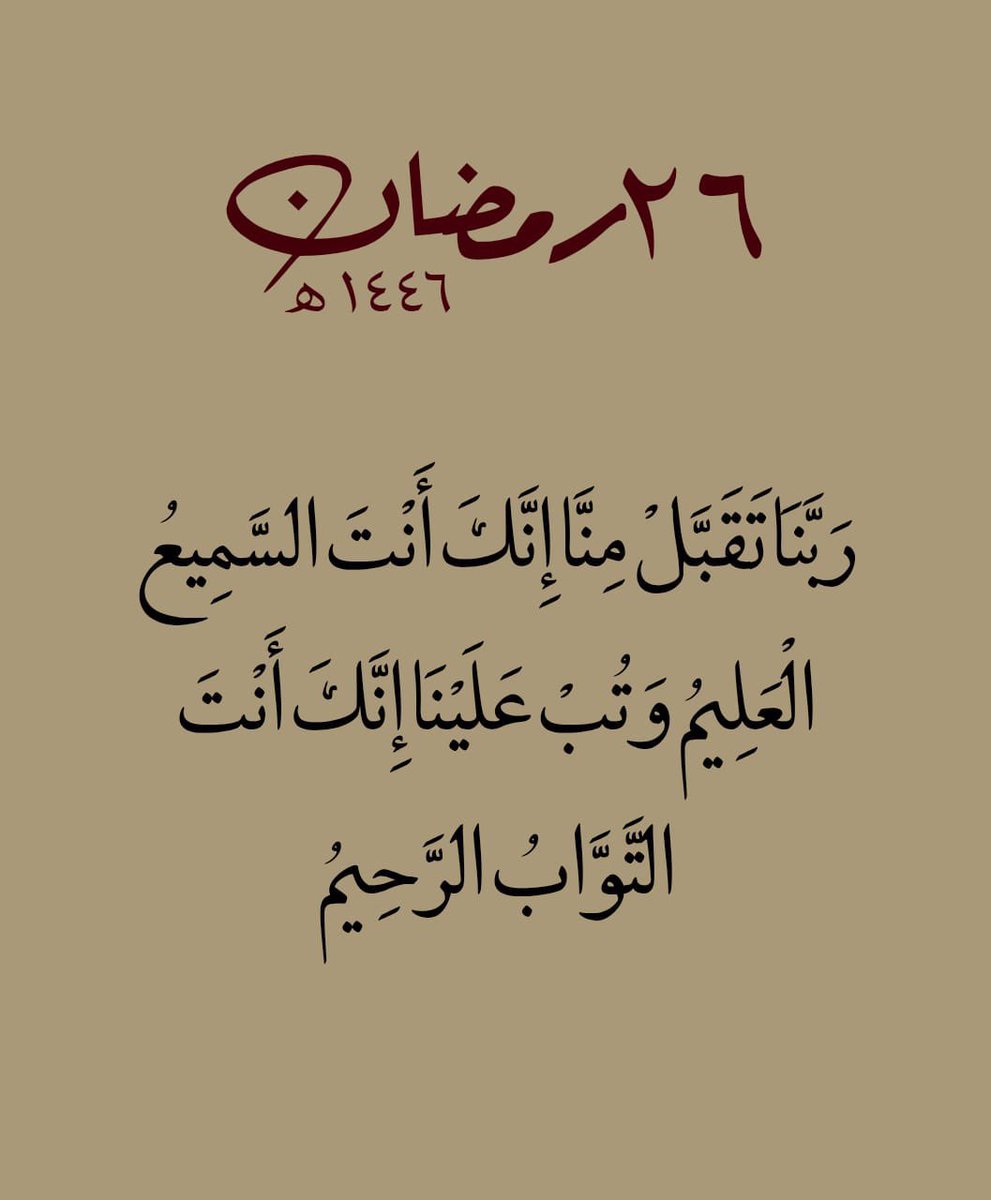 ٢٦ رمضان
١٤٤٦ هـ
رَبَّنَا تَقَبَّلْ مِنَّا إِنَّكَ أَنْتَ السَّمِيعُ
الْعَلِيمُ وَتُبْ عَلَيْنَا إِنَّكَ أَنْتَ
التَّوَّابُ الرَّحِيمُ